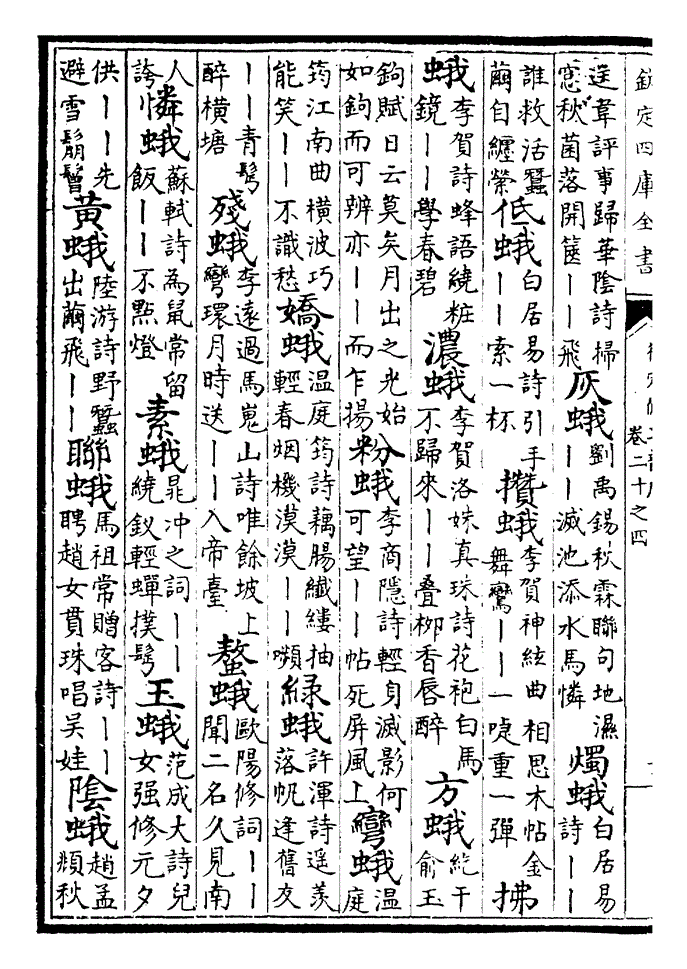 欽定四庫全書
卷二十之四
逞韋評事歸華陰詩掃窓秋菌落開篋——飛 灰蛾 劉禹錫秋霖聯句地濕——滅池添水馬憐 燭蛾 白居易詩——
誰救活蠶繭自纏縈 低蛾 白居易詩引手——索一杯 攢蛾 李賀神絃曲相思木帖金舞鸞——一啑重一彈 拂
蛾 李賀詩蜂語繞粧鏡——學春碧 濃蛾 李賀洛姝真珠詩花袍白馬不歸來——叠柳香唇醉 方蛾 紇干俞玉
鉤賦日云莫矣月出之光始如鉤而可辨亦——而乍揚 粉蛾 李商隱詩輕身滅影何可望——帖死屏風上 彎蛾 溫庭
筠江南曲橫波巧能笑——不識愁 嬌蛾 溫庭筠詩藕腸纖縷抽輕春烟機漠漠——嚬 綠蛾 許渾詩遥羨落帆逢舊友
——青鬟醉橫塘 殘蛾 李遠過馬嵬山詩唯餘坡上彎環月時送——入帝臺 鰲蛾 歐陽修詞——聞二名久見南
人誇 憐蛾 蘇軾詩為鼠常留飯——不點燈 素蛾 晁冲之詞——繞釵輕蟬撲鬢 玉蛾 范成大詩兒女强修元夕
供——先避雪鬅鬙 黃蛾 陸游詩野蠶出繭飛—— 聯蛾 馬祖常贈客詩——聘趙女貫珠唱吳娃 陰蛾 趙孟頫秋